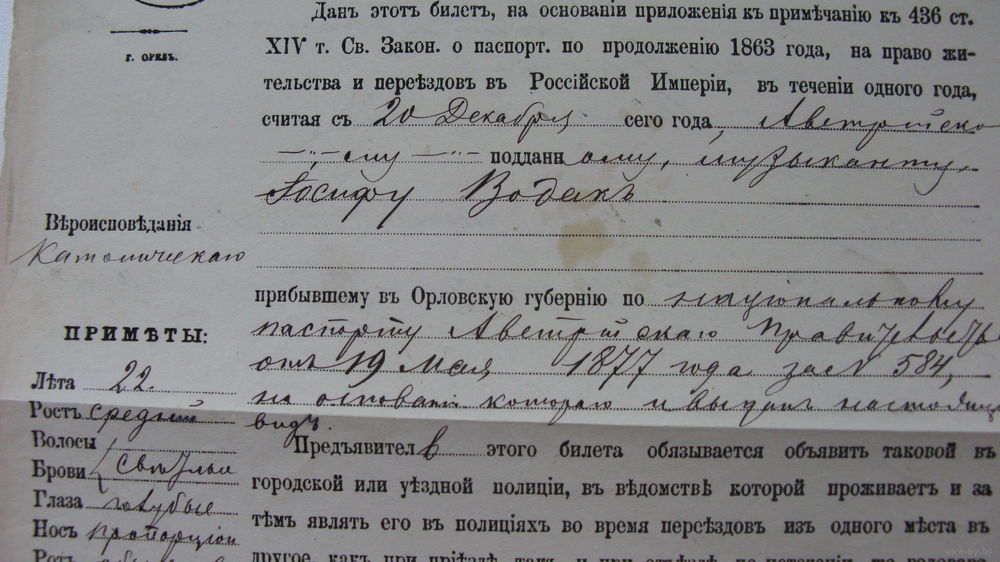 г. ОРЕЛЪ.
Данъ этотъ билетъ, на основаніи приложенія къ примѣчанію къ 436 ст.
XIV т. Св. Закон. о паспорт. по продолженію 1863 года, на право жи-
тельства и переѣздовъ въ Россійской Имперіи, въ теченіи одного года,
считая съ 20 Декабря сего года, Австрійско
-„- му -„- подданному, музыканту,
Іосифу Водакъ
Вѣроисповѣданія
Католическаго
прибывшему въ Орловскую губернію по національному
паспорту Австрійскаго Правительства
отъ 19 Мая 1877 года за № 584,
на основаніи котораго и выданъ настоящій
видъ.
ПРИМѢТЫ:
Лѣта 22.
Ростъ средній
Волосы
Брови свѣтлые
Глаза голубые
Носъ пропорціон
Ротъ
Предъявителъ этого билета обязывается объявить таковой въ
городской или уѣздной полиціи, въ вѣдомствѣ которой проживаетъ и за
тѣмъ являть его въ полиціяхъ во время переѣздовъ изъ одного мѣста въ
другое, какъ при пріѣздѣ, такъ и при отъѣздѣ,
www.ay.by